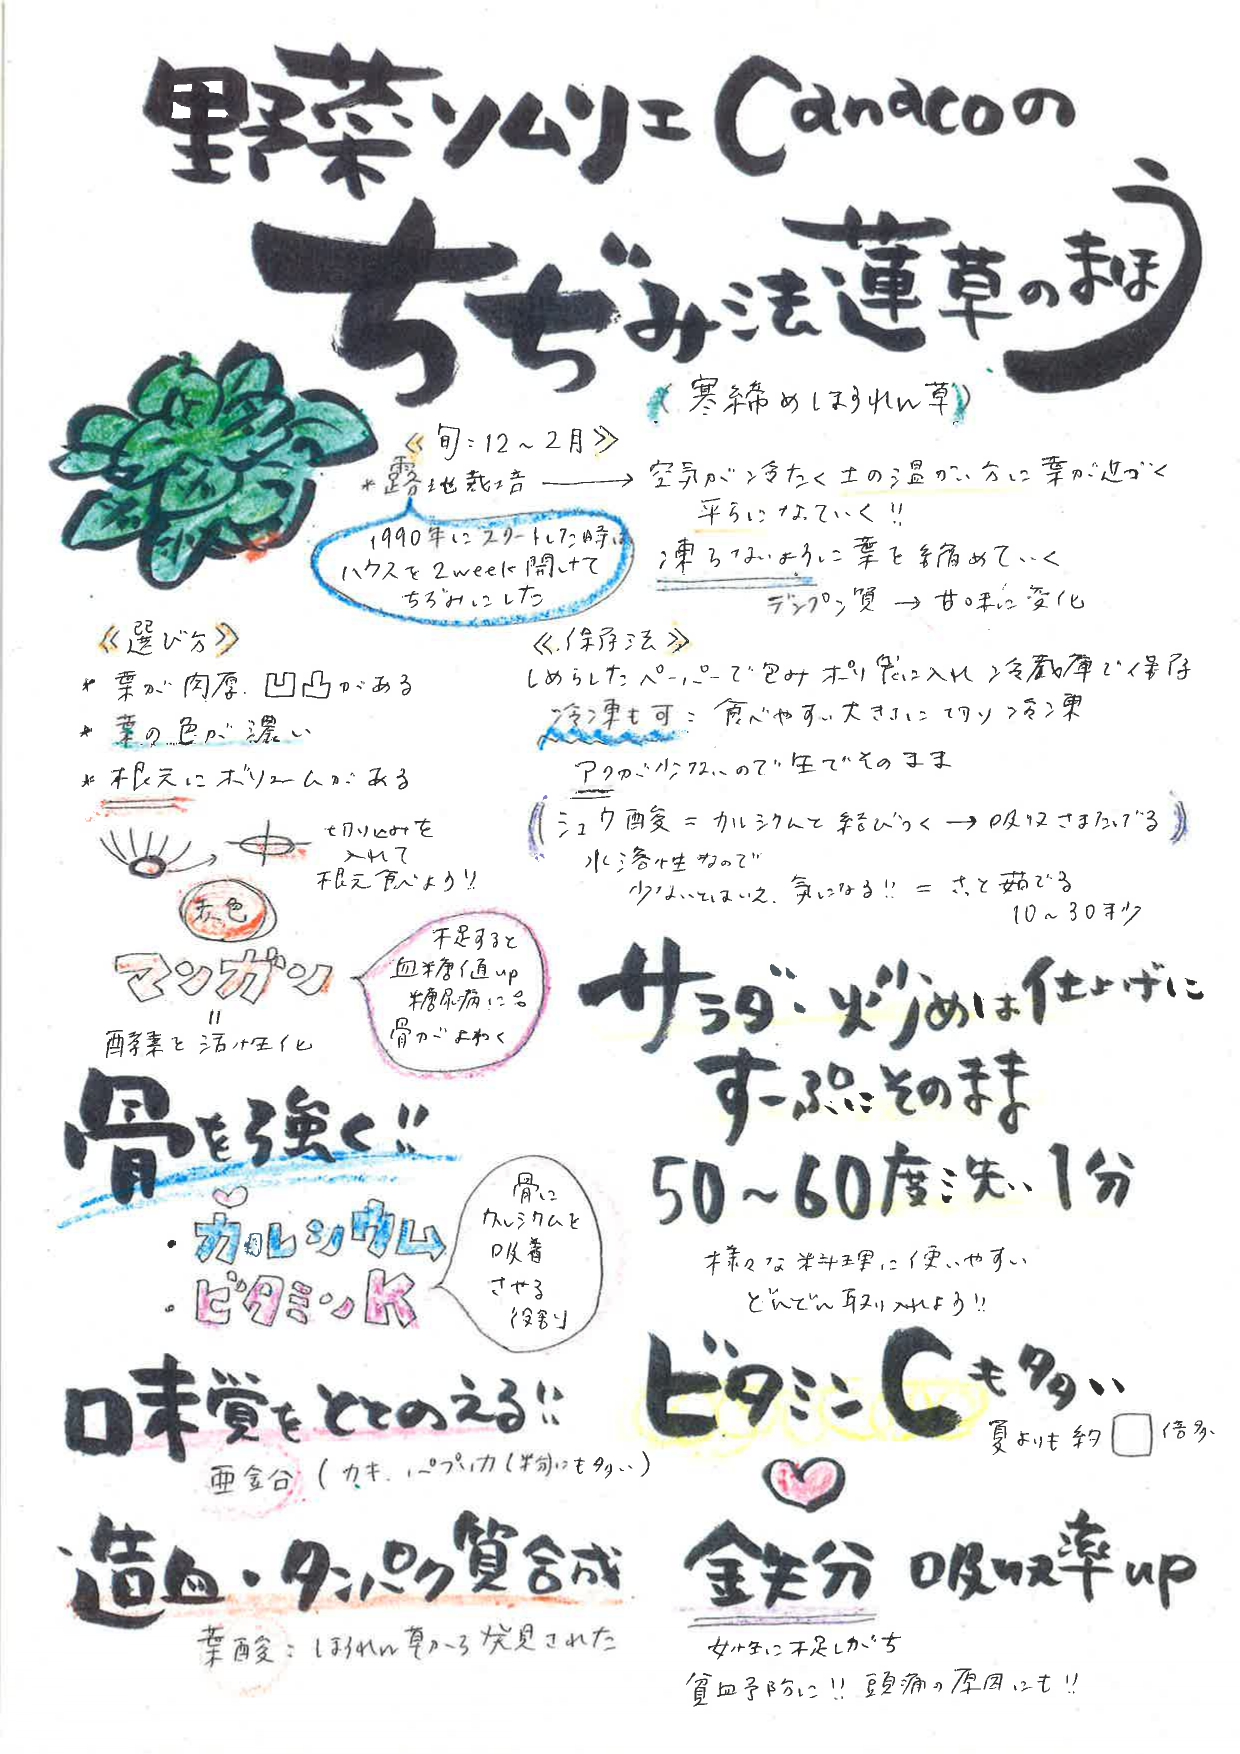 野菜ソムリエ Canacoの
ちぢみ法蓮草のまほう
(寒締めほうれん草)
《旬:12～2月》
*露地栽培 → 空気が冷たく土の温かい方に葉が近づく
平らになっていく!!
1990年にスタートした時は
ハウスを2week開けて
ちぢみにした
凍らないように葉を縮めていく
デンプン質 → 甘味に変化
《選び方》
* 葉が肉厚、凹凸がある
* 葉の色が濃い
* 根元にボリュームがある
切り込みを
入れて
根元食べよう!!
赤色
マンガン
=
酵素を活性化
不足すると
血糖値up
糖尿病に
骨がよわく
《保存法》
しめらしたペーパーで包みポリ袋に入れ冷蔵庫で保存
冷凍も可:食べやすい大きさに切り冷凍
アクが少ないので生でそのまま
(シュウ酸=カルシウムと結びつく→吸収さまたげる)
水溶性なので
少ないとはいえ、気になる!! = さっと茹でる
10～30秒
サラダ・炒めは仕上げに
すーぷにそのまま
50～60度洗い1分
様々な料理に使いやすい
どんどん取り入れよう!!
骨を強く!!
・カルシウム
・ビタミンK
骨に
カルシウムを
吸着
させる
役割
味覚をととのえる!!
亜鉛 (カキ、パプリカ(粉)にも多い)
造血・タンパク質合成
葉酸:ほうれん草から発見された
ビタミンCも多い
夏よりも約□倍多い
鉄分 吸収率up
女性に不足しがち
貧血予防に!! 頭痛の原因にも!!